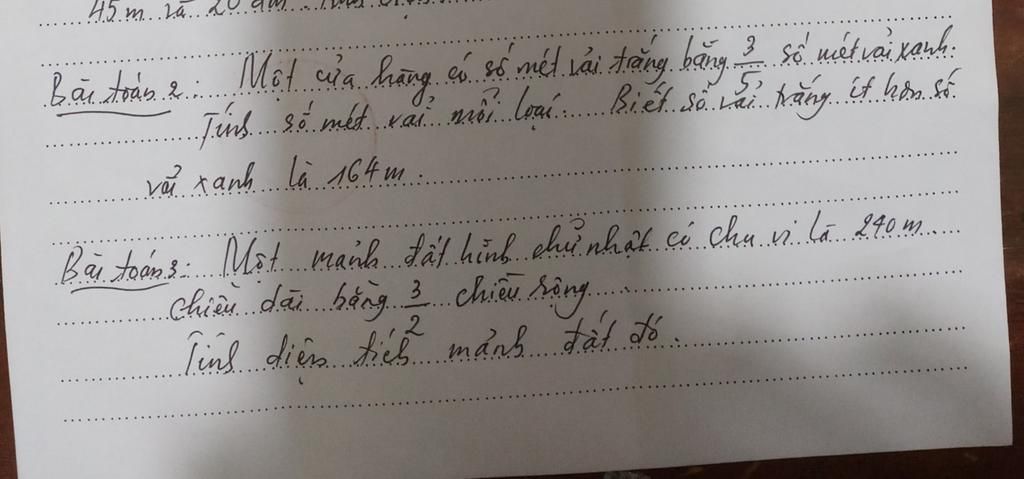 45m và 20 dm.
Bài toán 2: Một cửa hàng có số mét vải trắng bằng 3/5 số mét vải xanh.
Tính số mét vải mỗi loại. Biết số vải trắng ít hơn số
vải xanh là 164m.
Bài toán 3: Một mảnh đất hình chữ nhật có chu vi là 240m.
chiều dài bằng 3/2 chiều rộng
Tính diện tích mảnh đất đó.